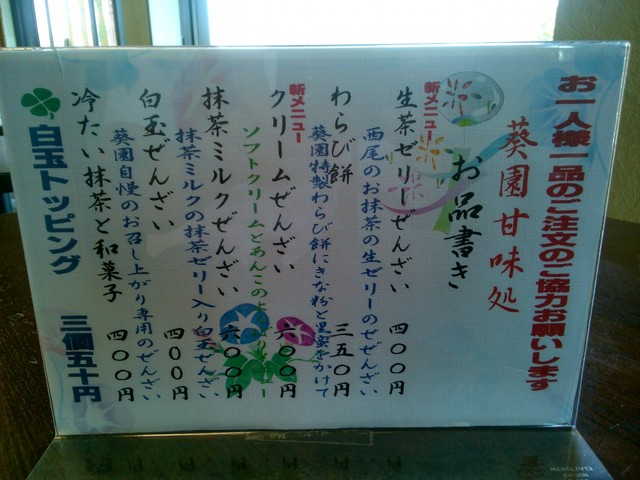 お一人様一品のご注文のご協力お願いします
葵園甘味処
お品書き
新メニュー
生茶ゼリーぜんざい 四〇〇円
西尾のお抹茶の生ゼリーのぜんざい
わらび餅 三五〇円
葵園特製わらび餅にきな粉と黒蜜をかけて
新メニュー
クリームぜんざい 六〇〇円
ソフトクリームとあんこの
抹茶ミルクぜんざい 六〇〇円
抹茶ミルクの抹茶ゼリー入り白玉ぜんざい
白玉ぜんざい 四〇〇円
葵園自慢のお召し上がり専用のぜんざい
冷たい抹茶と和菓子 四〇〇円
白玉トッピング 三個五十円
KOKUYO